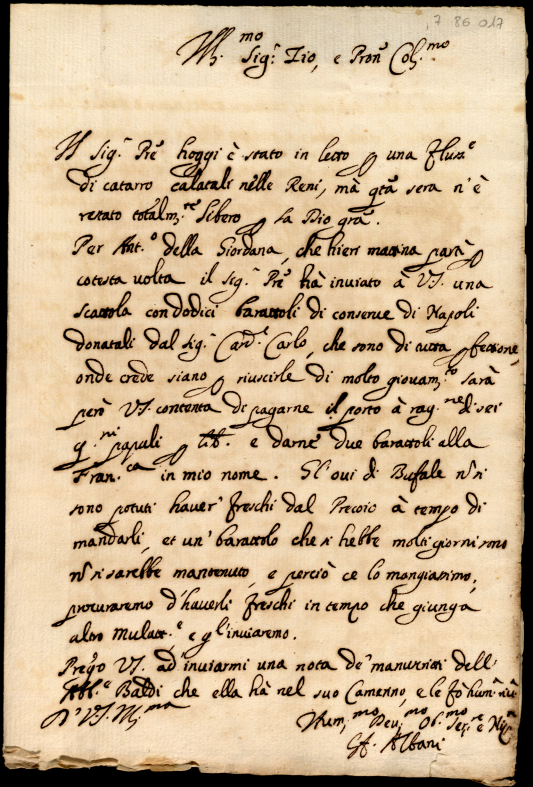 7 86 017
Ill.mo Sig.r Zio, e Pron Col.mo
Il Sig.r Pre hoggi è stato in letto p una fluss.e
di catarro calatali nelle Reni, mà qta sera n'è
restato totalm.te libero p la Dio gra.
Per Ant.o della Giordana, che hieri mattina partì p
cotesta volta il Sig.r Pre hà inviato à V.S. una
scattola con dodici barattoli di conserve di Napoli
donatali dal Sig.r Card.e Carlo, che sono di tutta pfettione,
onde crede siano p riuscirle di molto giovam.to sarà
però V.S. contenta di pagarne il porto à rag.ne di sei
q.ni papali p lib. e darne due barattoli alla
Fran.ca in mio nome. Gl'ovi di Bufale nō si
sono potuti haver' freschi dal Precoio à tempo di
mandarli, et un' barattolo che si hebbe molti giorni sono
nō si sarebbe mantenuto, e perciò ce lo mangiassimo,
procuraremo d'haverli freschi in tempo che giunga
altro Mulatt.e e gl'inviaremo.
Prego V.S. ad inviarmi una nota de' manuscritti dell'
Abb.e Baldi che ella hà nel suo Camerino, e le fò hum.
D' V.S. Ill.ma
Hum.mo Dev.mo Ob.mo Ser.re e
Albani